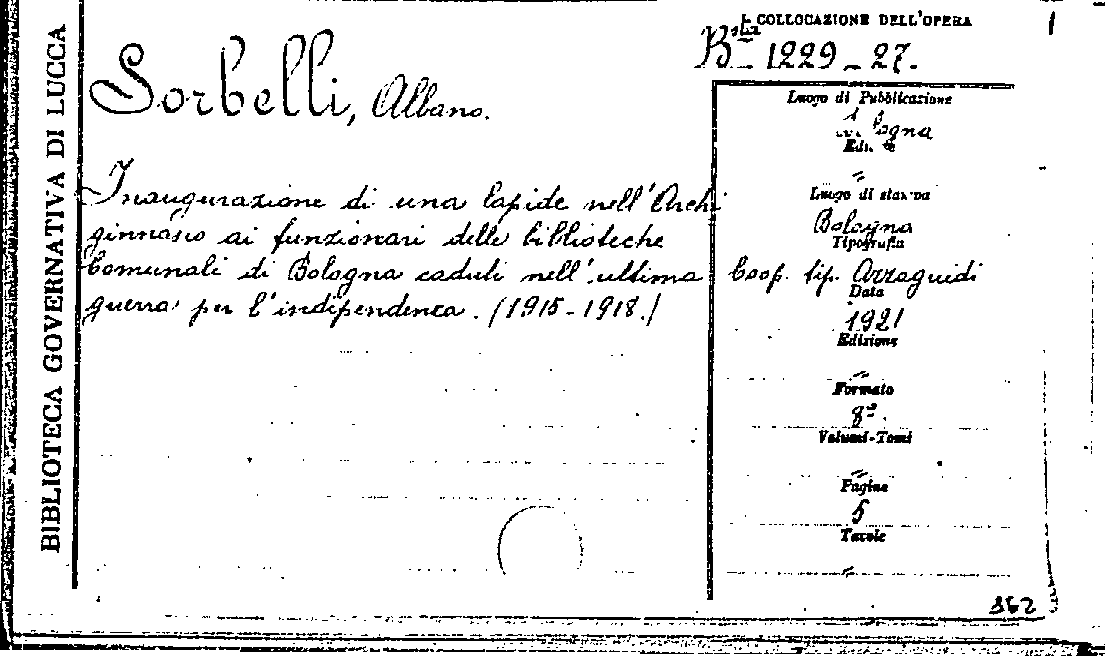 BIBLIOTECA GOVERNATIVA DI LUCCA
COLLOCAZIONE DELL'OPERA
Bsta 1229-27.
Sorbelli, Albano.
Inaugurazione di una lapide nell'Archi
ginnasio ai funzionari delle biblioteche
Comunali di Bologna caduti nell'ultima
guerra per l'indipendenza. (1915-1918.)
Luogo di Pubblicazione
Luogo di stampa
Bologna
Tipografia
Coop. tip. Azzoguidi
Data
1921
Edizione
Formato
8º.
Volumi-Tomi
Pagine
5
Tavole
362